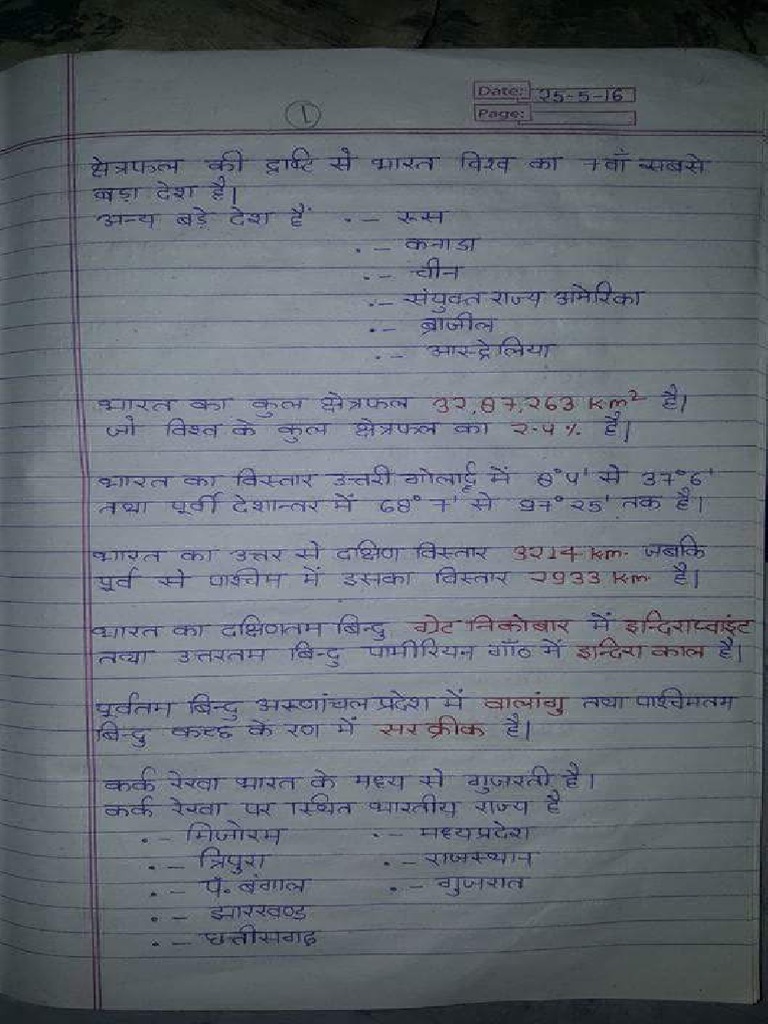 1
Date: 25-5-16
Page:
क्षेत्रफल की दृष्टि से भारत विश्व का 7वाँ सबसे
बड़ा देश है।
अन्य बड़े देश हैं .- रूस
.- कनाडा
.- चीन
.- संयुक्त राज्य अमेरिका
.- ब्राजील
.- आस्ट्रेलिया
भारत का कुल क्षेत्रफल 32,87,263 km² है।
जो विश्व के कुल क्षेत्रफल का 2.4% है।
भारत का विस्तार उत्तरी गोलार्द्ध में 8°4' से 37°6'
तथा पूर्वी देशान्तर में 68°7' से 97°25' तक है।
भारत का उत्तर से दक्षिण विस्तार 3214 km. जबकि
पूर्व से पश्चिम में इसका विस्तार 2933 km है।
भारत का दक्षिणतम बिन्दु ग्रेट निकोबार में इन्दिराप्वाइंट
तथा उत्तरतम बिन्दु पामीरियन गाँठ में इन्दिरा काल है।
पूर्वतम बिन्दु अरुणांचल प्रदेश में वालांगु तथा पश्चिमतम
बिन्दु कच्छ के रण में सर क्रीक है।
कर्क रेखा भारत के मध्य से गुजरती है।
कर्क रेखा पर स्थित भारतीय राज्य है
.- मिजोरम .- मध्यप्रदेश
.- त्रिपुरा .- राजस्थान
.- पं. बंगाल .- गुजरात
.- झारखण्ड
.- छत्तीसगढ़